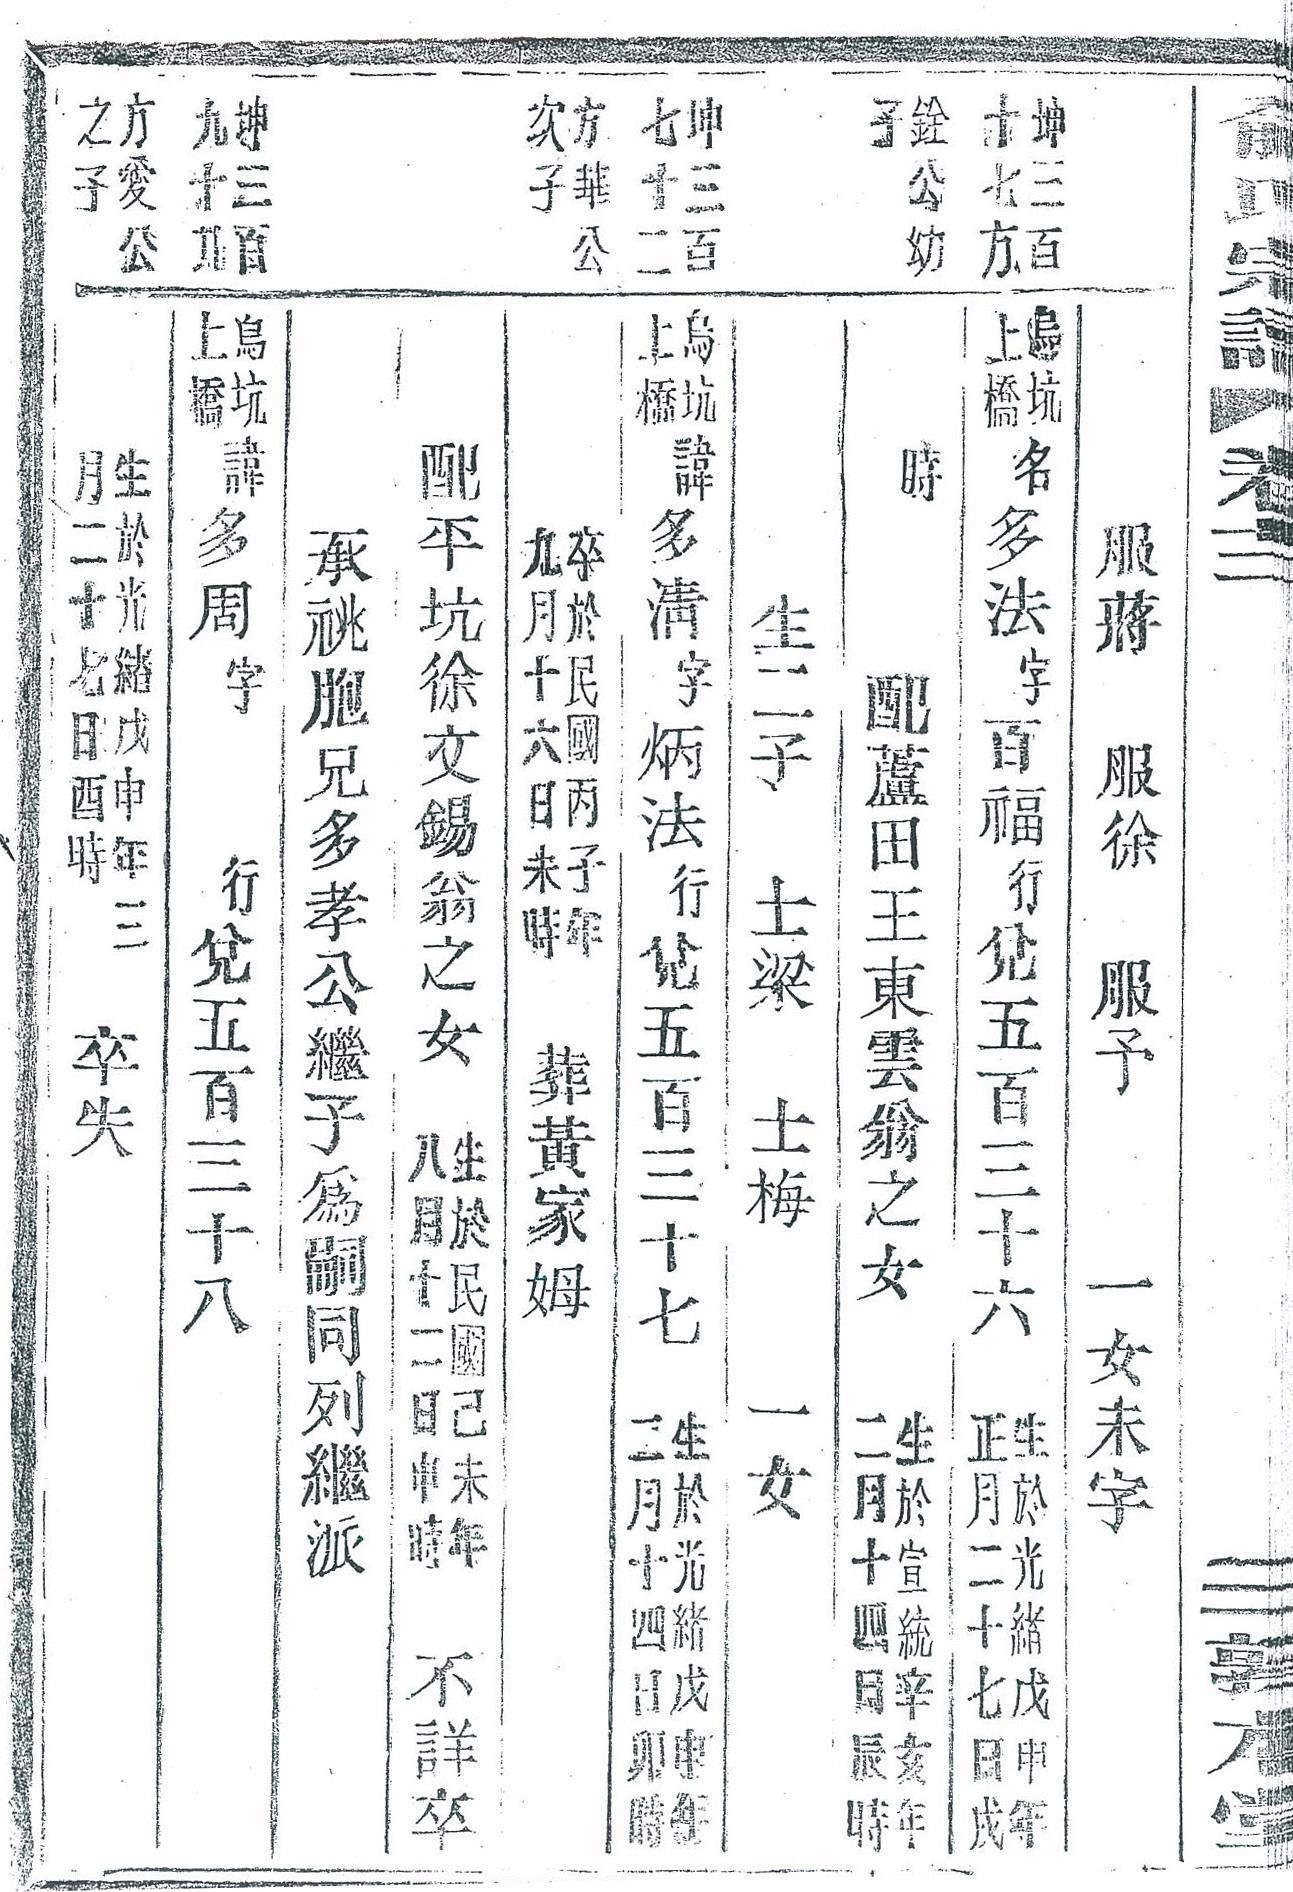 俞氏宗譜 卷三 三 敦本堂
服蔣 服徐 服予 一女未字
坤三百
十七方
烏坑
上橋
名多法字百福行兌五百三十六
生於光緒戊申年
正月二十七日戌
銓公幼
子
時 配蘆田王東雲翁之女
生於宣統辛亥年
二月十四日辰時
生二子 士梁 士梅 一女
坤三百
七十二
烏坑
上橋
諱多清字炳法行兌五百三十七
生於光緒戊申年
二月十四日卯時
方華公
次子
卒於民國丙子年
九月十六日未時
葬黃家姆
配平坑徐文錫翁之女
生於民國己未年
八月十二日申時
不詳卒
承祧胞兄多孝公繼子爲嗣同列繼派
坤三百
九十九
烏坑
上橋
諱多周字 行兌五百三十八
方愛公
之子
生於光緒戊申年三
月二十七日酉時
卒失